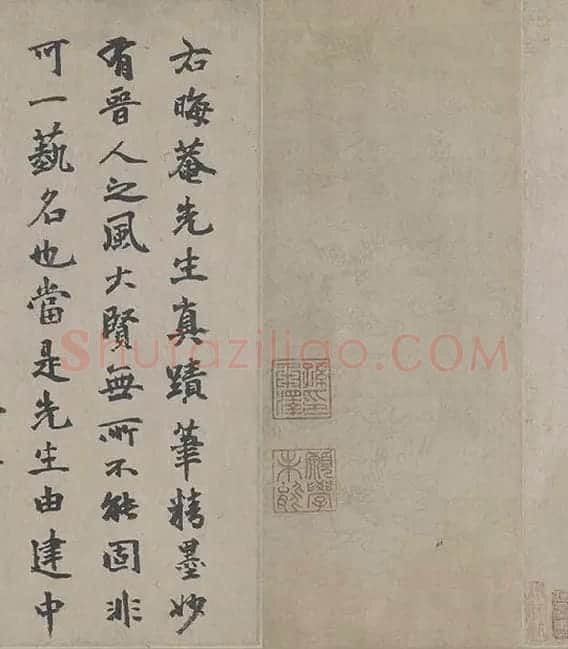 右晦菴先生真蹟筆精墨妙
有晉人之風大賢無所不能固非
可一藝名也當是先生由建中
Shufaziliao.COM